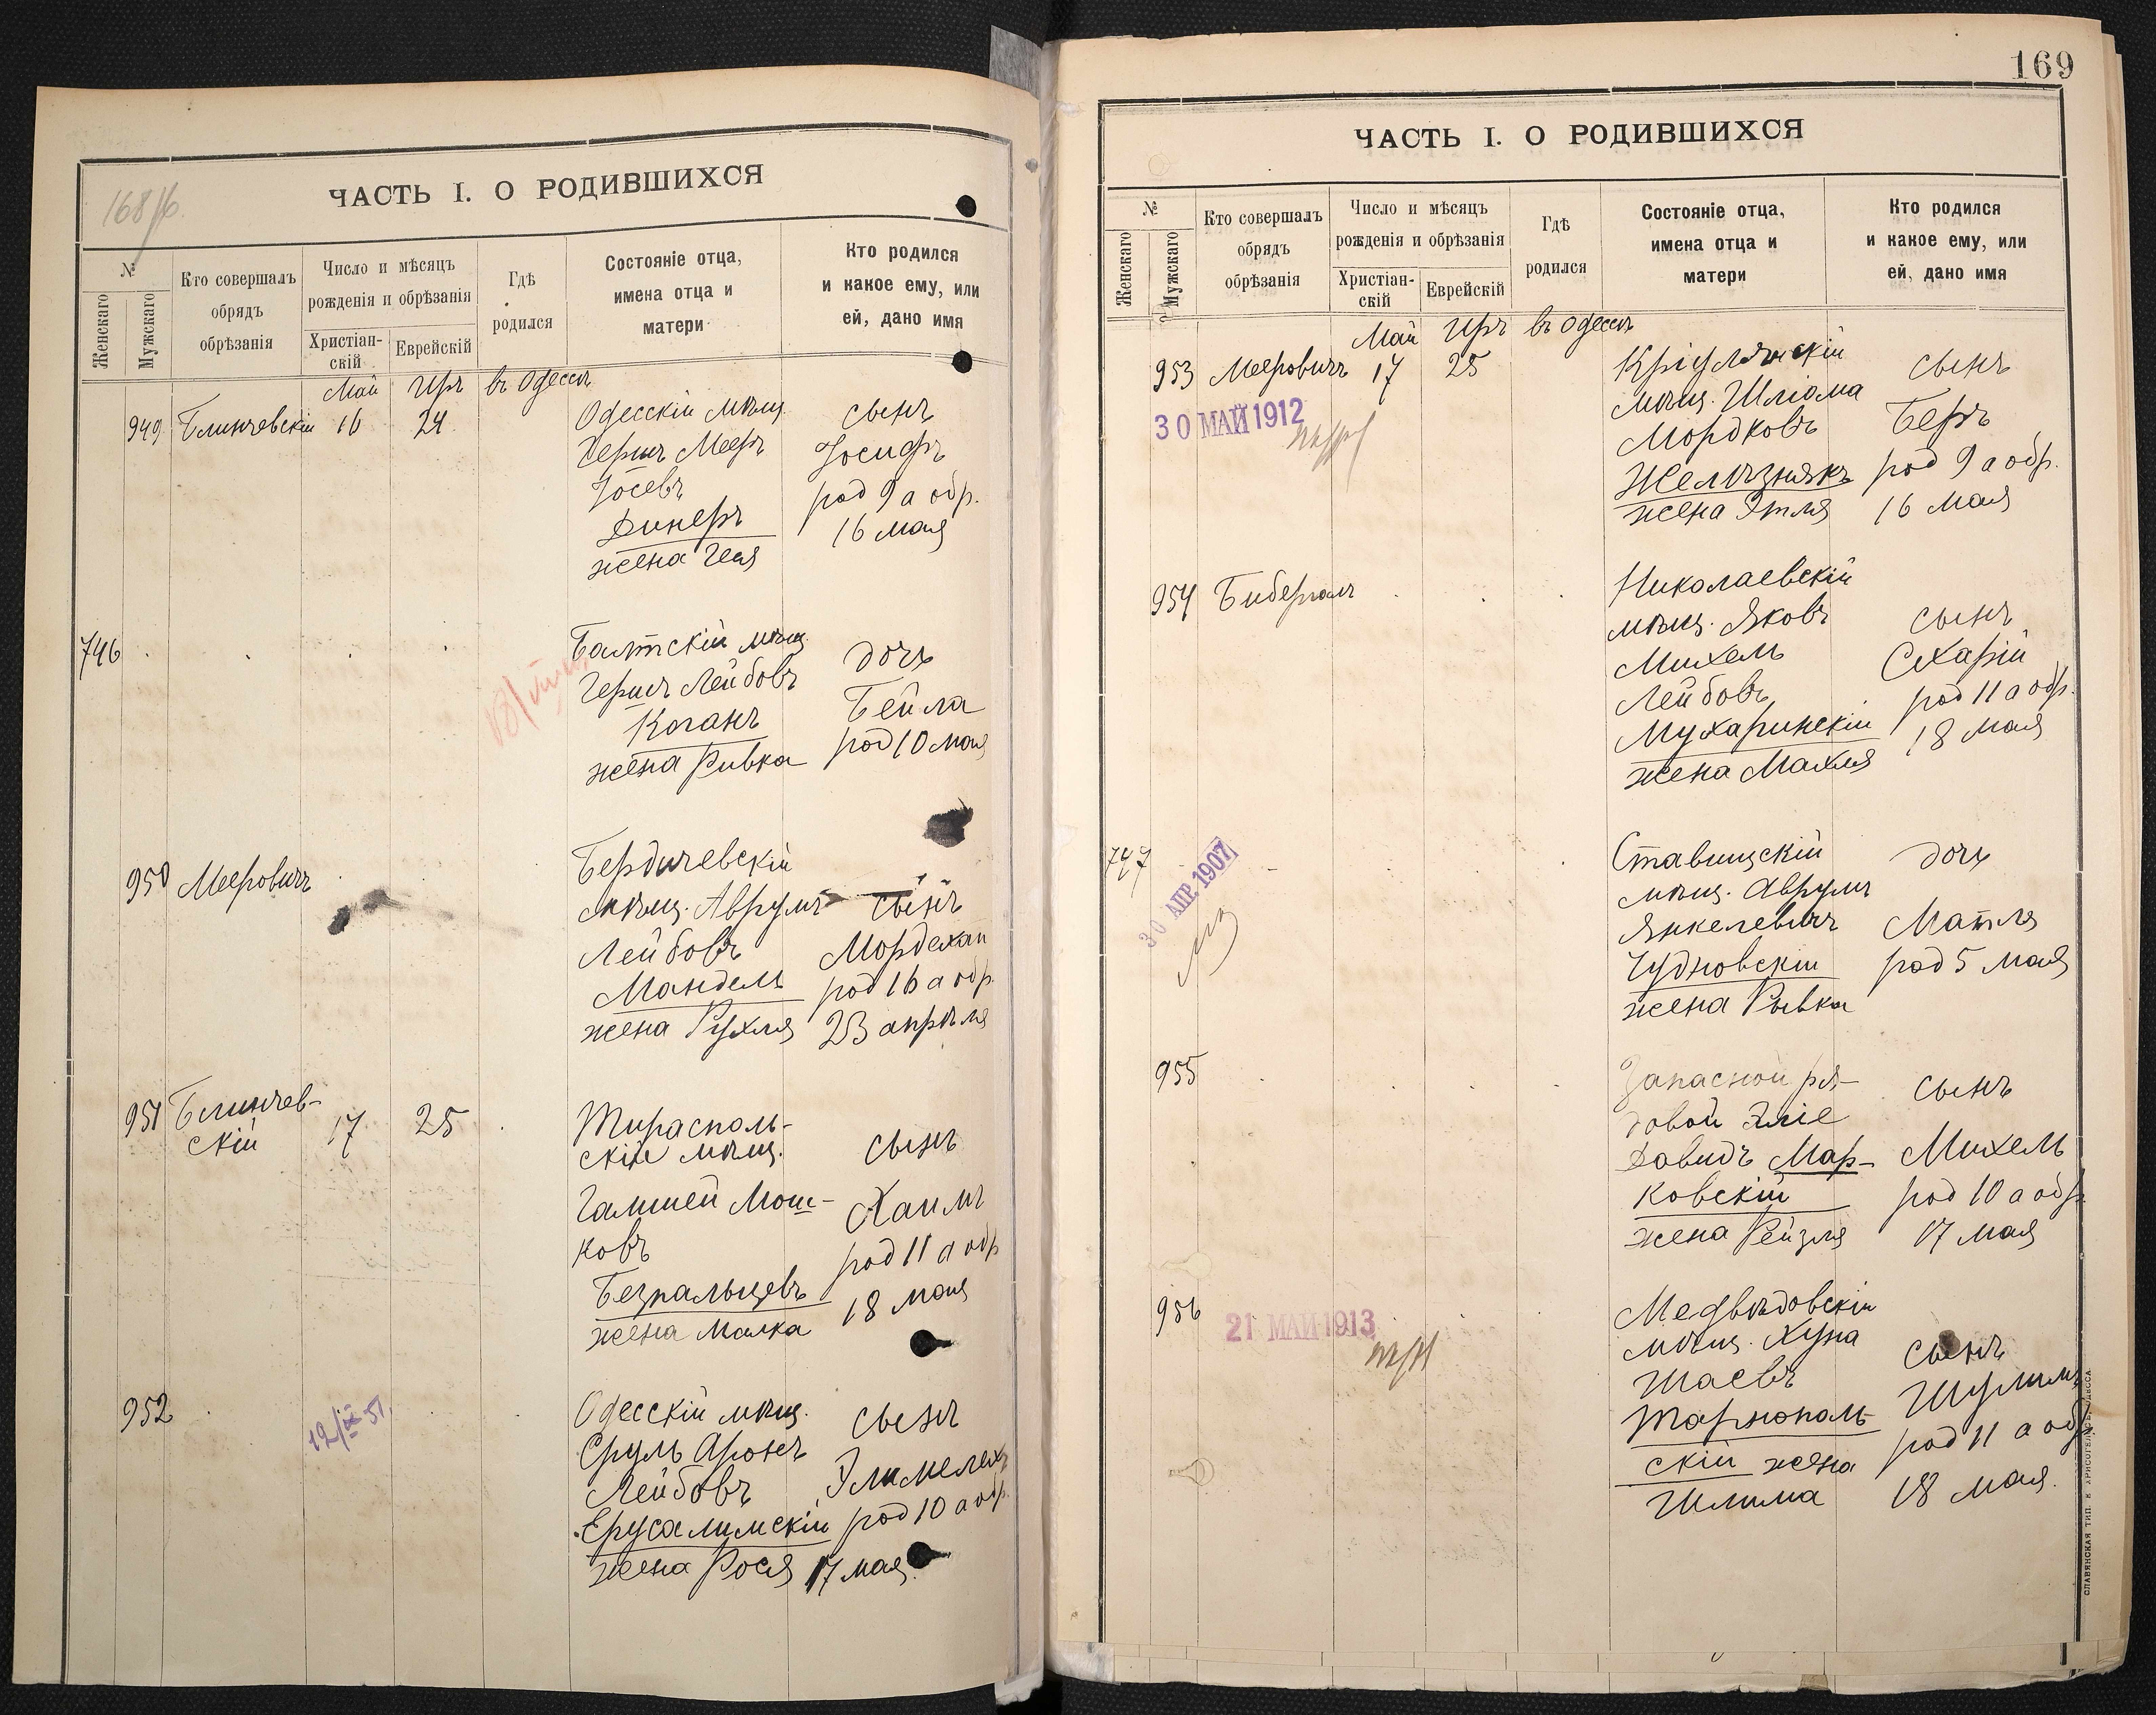 168/б.
ЧАСТЬ I. О РОДИВШИХСЯ
№
Женскаго
Мужскаго
Кто совершалъ
обрядъ
обрѣзанія
Число и мѣсяцъ
рожденія и обрѣзанія
Христіан-
скій
Еврейскій
Гдѣ
родился
Состояніе отца,
имена отца и
матери
Кто родился
и какое ему, или
ей, дано имя
Май Иръ въ Одессѣ
949 Блинчевскій 16 24
Одесскій мѣщ.
Гершъ Мееръ
Іосевъ
Динеръ
жена Геня
сынъ
Іосифъ
род 9 а обр.
16 мая
746
Балтскій мѣщ.
Гершъ Лейбовъ
Коганъ
жена Ривка
дочь
Бейла
род 10 мая
950 Мееровичъ
Бердичевскій
мѣщ. Аврумъ
Лейбовъ
Мандель
жена Рухля
сынъ
Мордехай
род 16 а обр.
23 апрѣля
951 Блинчев-
скій
17 25
Тирасполь-
скій мѣщ.
Гамшей Мош-
ковъ
Безпальцевъ
жена Малка
сынъ
Хаимъ
род 11 а обр
18 мая
952
12/IX 51.
Одесскій мѣщ.
Сруль Аронъ
Лейбовъ
Ерусалимскій
жена Рося
сынъ
Элимелехъ
род 10 а обр.
17 мая.
169
ЧАСТЬ I. О РОДИВШИХСЯ
№
Женскаго
Мужскаго
Кто совершалъ
обрядъ
обрѣзанія
Число и мѣсяцъ
рожденія и обрѣзанія
Христіан-
скій
Еврейскій
Гдѣ
родился
Состояніе отца,
имена отца и
матери
Кто родился
и какое ему, или
ей, дано имя
Май Иръ въ Одессѣ
953 Мееровичъ 17 25
30 МАЙ 1912
Кріулянскій
мѣщ. Шліома
Мордковъ
Желѣзнякъ
жена Этля
сынъ
Беръ
род 9 а обр.
16 мая
954 Бибергалъ
Николаевскій
мѣщ. Яковъ
Михель
Лейбовъ
Мухаринскій
жена Махля
сынъ
Схарій
род 11 а обр.
18 мая
747
30 АПР. 1907
Ставищскій
мѣщ. Аврумъ
Янкелевичъ
Чудновскій
жена Рывка
дочь
Матля
род 5 мая
955
Запасной ря-
довой Эліе
Давидъ Мар-
ковскій
жена Рейзля
сынъ
Михель
род 10 а обр
17 мая
956
21 МАЙ 1913
Медвѣдовскій
мѣщ. Хуна
Шаевъ
Тарнополь-
скій жена
Шлима
сынъ
Шулимъ
род 11 а обр
18 мая.